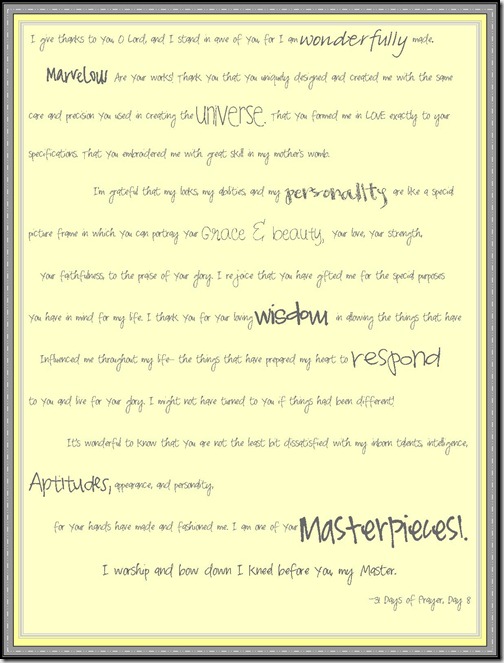 I give thanks to You, O Lord, and I stand in awe of You, for I am wonderfully made.
Marvelous Are Your works! Thank You that You uniquely designed and created me with the same
care and precision You used in creating the universe. That You formed me in LOVE exactly to your
specifications. That You embroidered me with great skill in my mother's womb.
I'm grateful that my looks, my abilities, and my personality are like a special
picture frame in which You can portray Your Grace & beauty, Your love, Your strength,
Your faithfulness, to the praise of Your glory. I rejoice that You have gifted me for the special purposes
You have in mind for my life. I thank You for Your loving wisdom in allowing the things that have
Influenced me throughout my life- the things that have prepared my heart to respond
to You and live for Your glory. I might not have turned to You if things had been different!
It's wonderful to know that You are not the least bit dissatisfied with my inborn talents, intelligence,
Aptitudes, appearance, and personality,
for Your hands have made and fashioned me. I am one of Your Masterpieces!.
I worship and bow down I kneel before You, my Master.
-31 Days of Prayer, Day 8